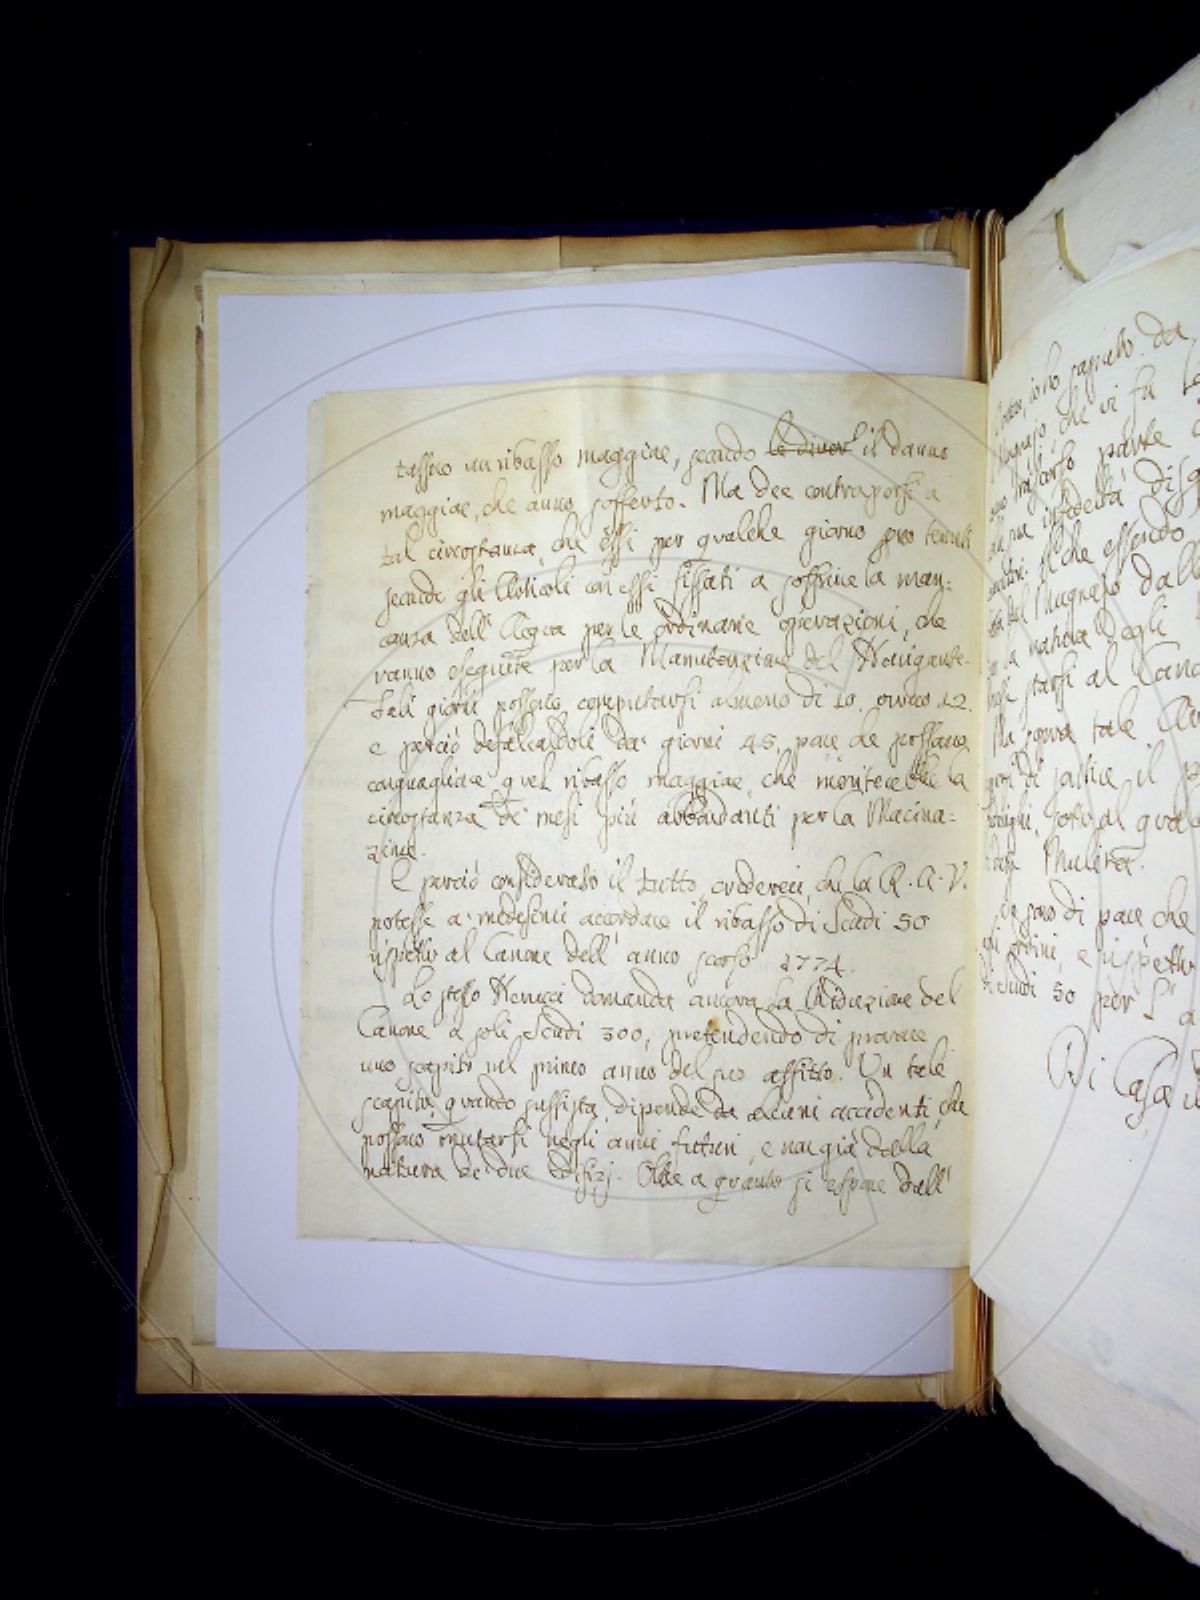 tassero un ribasso maggiore, secondo le diver il danno
maggiore, che anno sofferto. Ma dee contraporsi a
tal circostanza, che essi per qualche giorno sono tenuti
secondo gli Articoli con essi fissati a soffrire la man:
canza dell' Acqua per le ordinarie operazioni, che
vanno eseguite per la Manutenzione del
Tali giorni possono computarsi almeno di 10. ovvero 12.
e perciò defalcandoli da' giorni 45, pare che possano
conguagliare quel ribasso maggiore, che monterebbe la
circostanza de' mesi più abbondanti per la Macina:
zione.
E perciò considerato il tutto, crederei, che la R. A. V.
potesse a' medesimi accordare il ribasso di Scudi 50
rispetto al Canone dell' anno scorso 1774.
Lo stesso domanda ancora la Riduzione del
Canone a soli Scudi 300, pretendendo di provare
uno scapito nel primo anno del suo affitto. Un tale
scapito, quando sussista, dipende da alcuni accidenti, che
possono mutarsi negli anni futuri, e non già dalla
natura de' due Edifizj. Oltre a quanto si espone dall'
io ho pagato da
che vi fu
parte
infedeltà
Il che essendo
del Mugnajo dall
natura degli
starsi al Cano
Ma sopra tale
di patire il
sotto al qual
Mulino.
sono di pare che
ordini, e rispetto
di Scudi 50 per
Di Casa